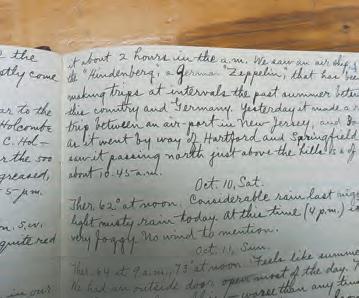 e the
stly come
ar to the
Holcombe
C. Hol-
r the 500
greased,
5 p.m.
n. S.W.
quite red
in our
it about 2 hours in the a.m. We saw an air ship,
the "Hindenberg", a German "Zeppelin", that has be
making trips at intervals the past summer betwee
this country and Germany. Yesterday it made a
trip between an air-port in New Jersey, and Bo
as it went by way of Hartford and Springfield
saw it passing north just above the hills E. of
about 10.45 a.m.
Oct. 10, Sat.
Ther. 62° at noon. Considerable rain last nigh
light misty rain today. At this time (4 p.m.)
very foggy. No wind to mention.
Oct. 11, Sun.
Ther. 64 at 9 a.m., 73° at noon. Feels like summe
He had an outside door open most of the day.
worse than any tim